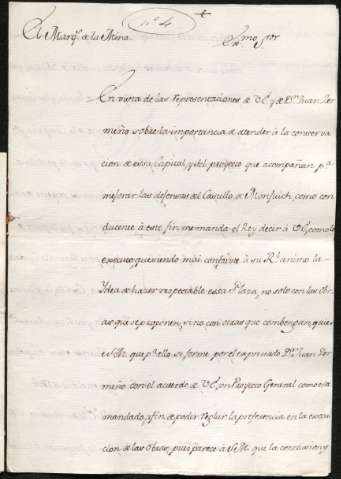 nº 4
Al Marqs. de la Mina.
Exmo. Sor.
En vista de las representaciones de V.E. y de Dn. Juan Zer
meño sobre la importancia de atender à la conserva
cion de essa Capital, y del proyecto que acompañan pa.
mejorar las defensas del Castillo de Monjuich, como con
ducente à este fin, me manda el Rey decir à V.E. como lo
executo, que siendo mui conforme à su Rl. animo la
Ydea de hacer respectable essa Plaza, no solo con las Ob
ras que se proponen, sino con otras que combengan, quiere
S.M. que pa. ello se forme por el expresado Dn. Juan Zer
meño con el acuerdo de V.E. un Proyecto General como esta
mandado, a fin de poder reglar la preferencia en la execu
cion de las Obras, pues parece à S.M. que la conclusion y